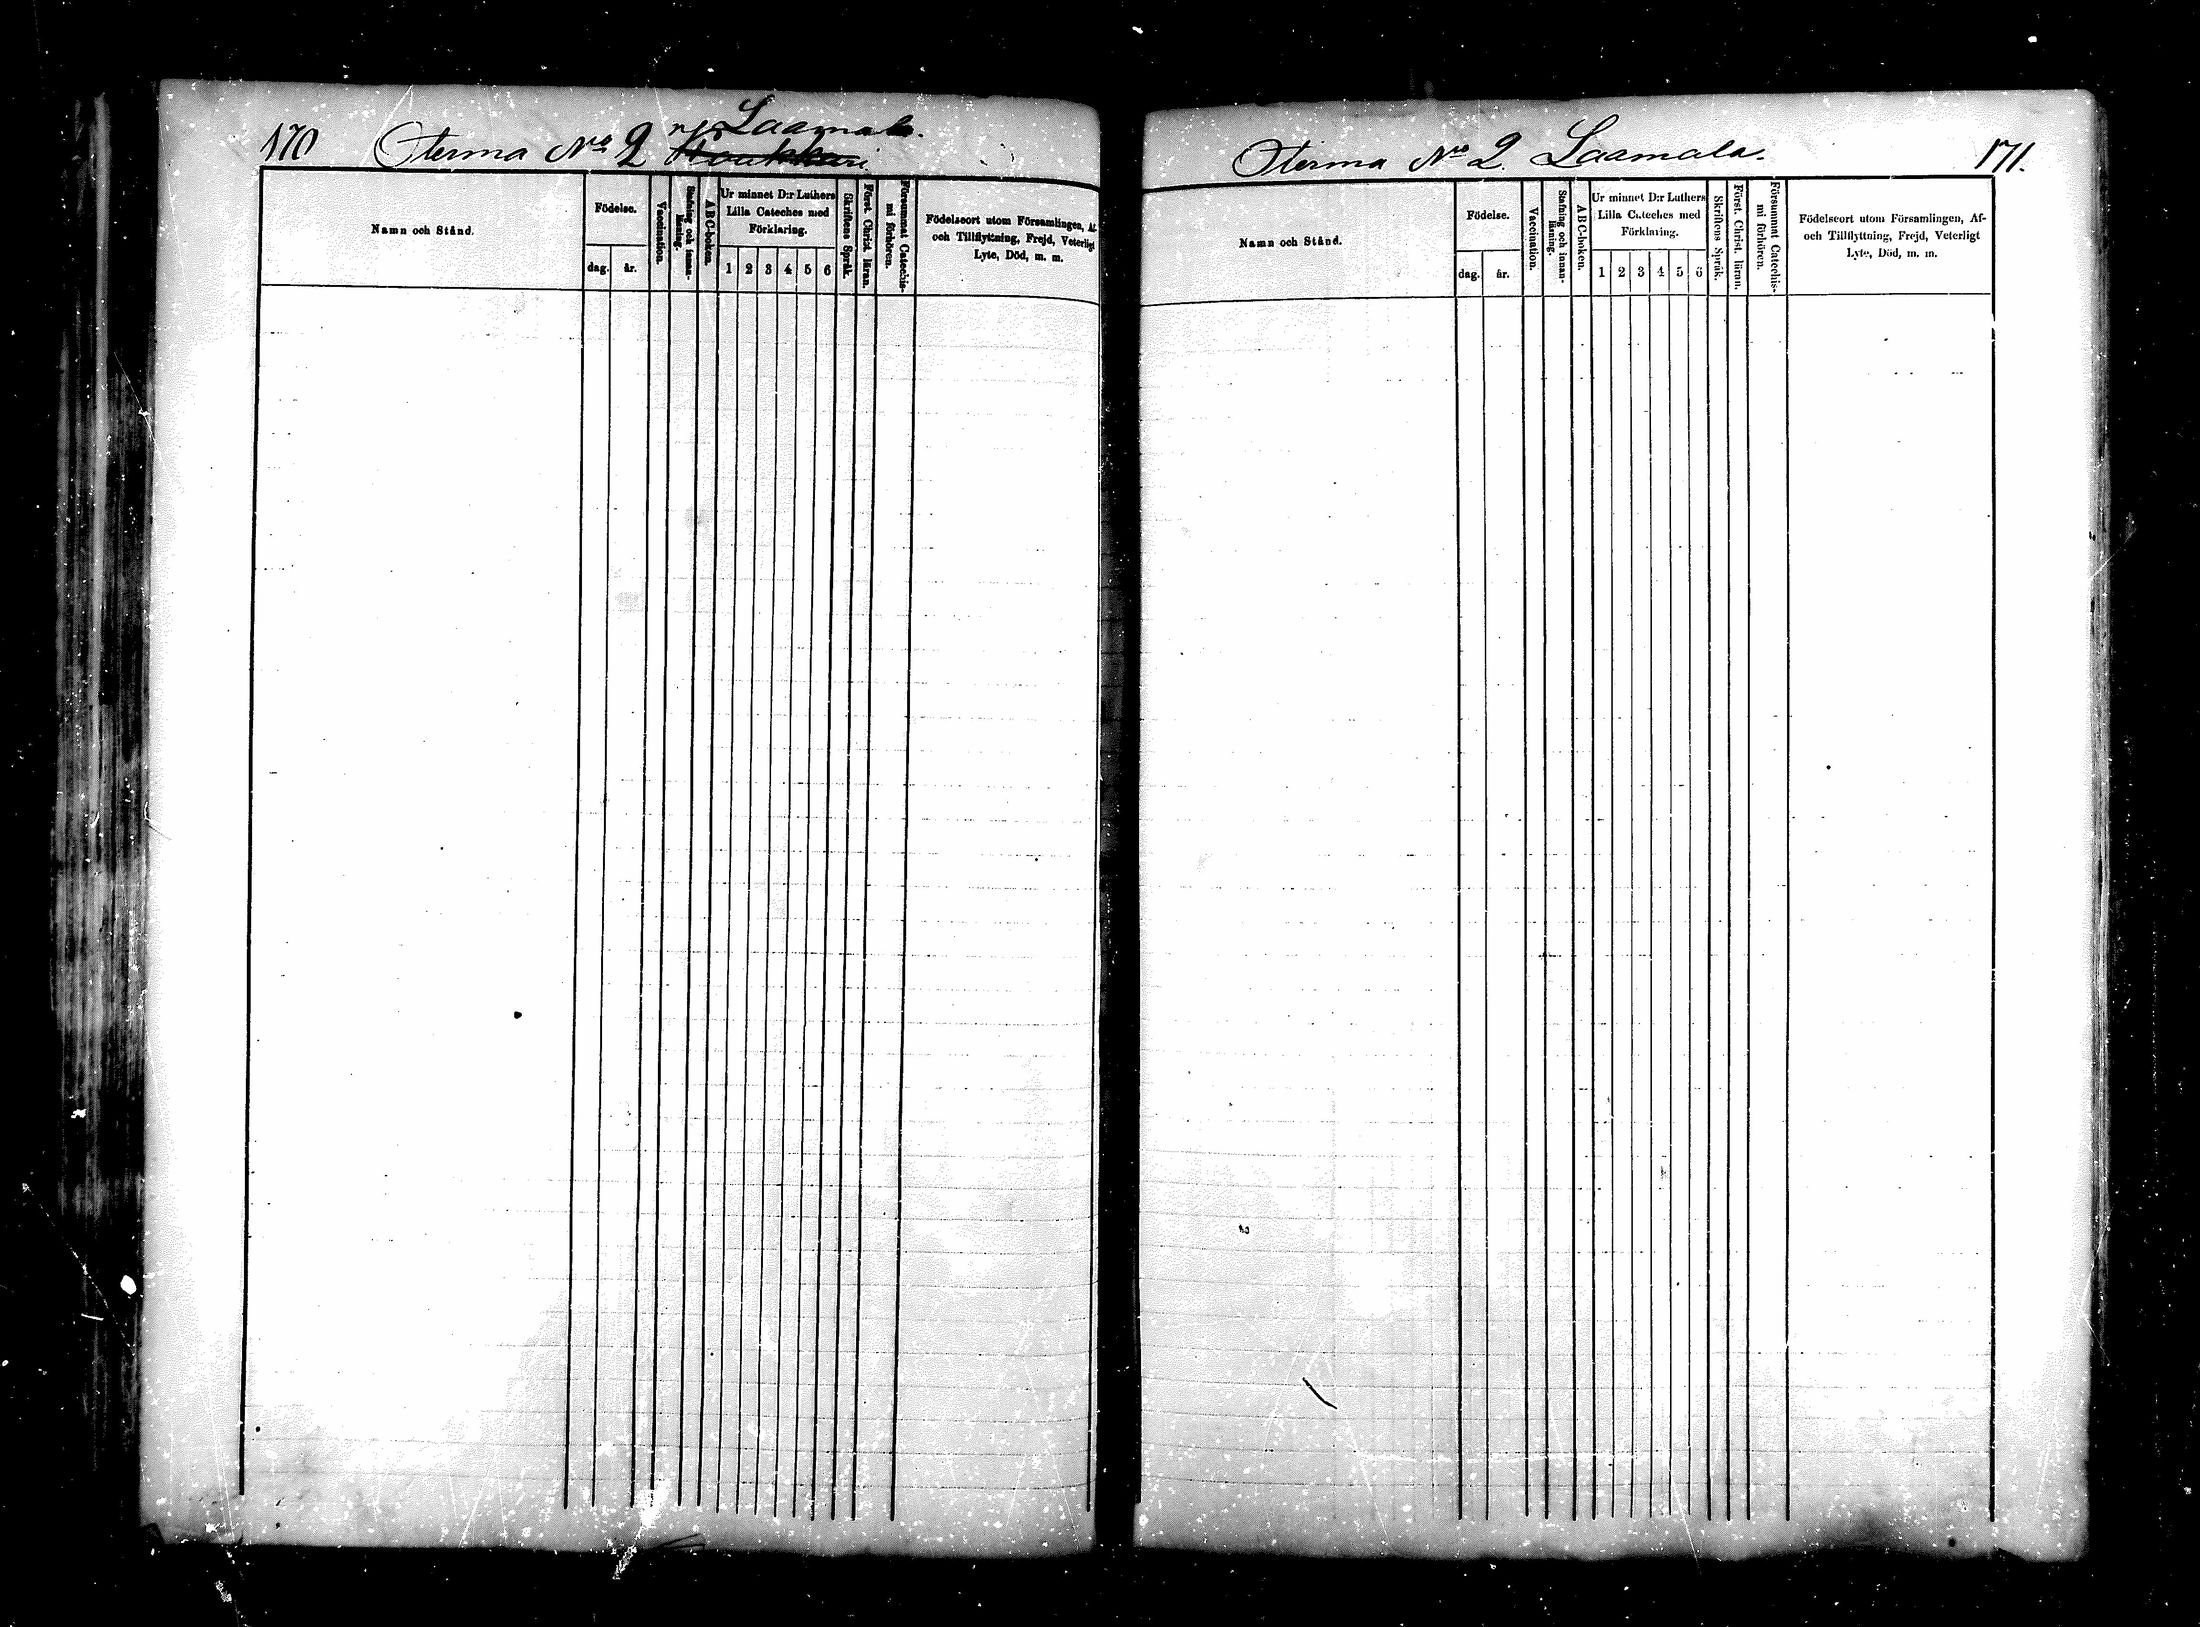 170 Oterma No 2 Laamala.
Namn och Stånd.
Födelse.
dag.
år.
Vaccination.
Stafning och innan-
läsning.
A B C-boken.
Ur minnet D:r Luthers
Lilla Cateches med
Förklaring.
1 2 3 4 5 6
Skriftens Språk.
Förset. Christ. läran.
Försummat Catechis-
mi förhören.
Födelseort utom Församlingen, Af-
och Tillflyttning, Frejd, Veterligt
Lyte, Död, m. m.
Oterma No 2. Laamala. 171.
Namn och Stånd.
Födelse.
dag.
år.
Vaccination.
Stafning och innan-
läsning.
A B C-boken.
Ur minnet D:r Luthers
Lilla Cateches med
Förklaring.
1 2 3 4 5 6
Skriftens Språk.
Först. Christ. läran.
Försummat Catechis-
mi förhören.
Födelseort utom Församlingen, Af-
och Tillflyttning, Frejd, Veterligt
Lyte, Död, m. m.